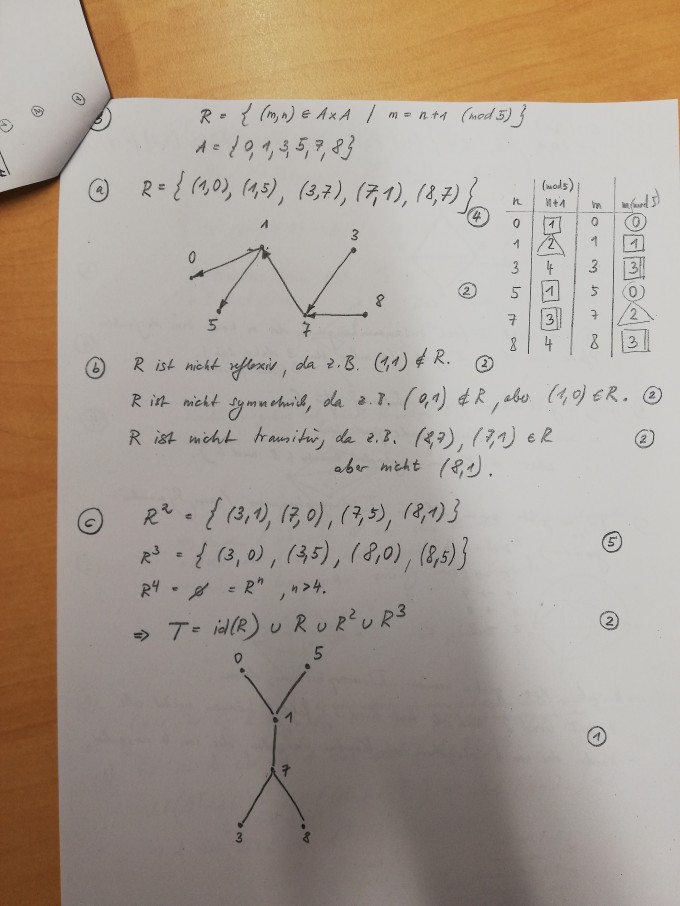 ③ R = { (m,n) ∈ A×A / m = n+1 (mod 5) }
A = { 0, 1, 3, 5, 7, 8 }
ⓐ R = { (1,0), (1,5), (3,7), (7,1), (8,7) } ④
n (mod 5) n+1 m m (mod 5)
0 1 0 0
1 2 1 1
3 4 3 3
5 1 5 0
7 3 7 2
8 4 8 3
1
0 3
5 7 8 ②
ⓑ R ist nicht reflexiv, da z.B. (1,1) ∉ R. ②
R ist nicht symmetrisch, da z.B. (0,1) ∉ R, aber (1,0) ∈ R. ②
R ist nicht transitiv, da z.B. (8,7), (7,1) ∈ R ②
aber nicht (8,1).
ⓒ R² = { (3,1), (7,0), (7,5), (8,1) }
R³ = { (3,0), (3,5), (8,0), (8,5) } ⑤
R⁴ = ∅ = Rⁿ, n>4.
⇒ T = id(R) ∪ R ∪ R² ∪ R³ ②
0 5
1 ①
7
3 8